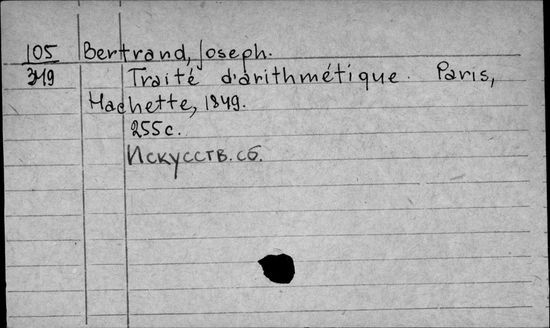 105 Bertrand, Joseph.
319 Traité d'arithmétique. Paris,
Hachette, 1849.
255 с.
Искусств. сб.